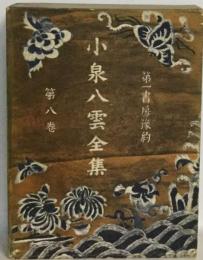 第一書房豫約
小泉八雲全集
第八卷